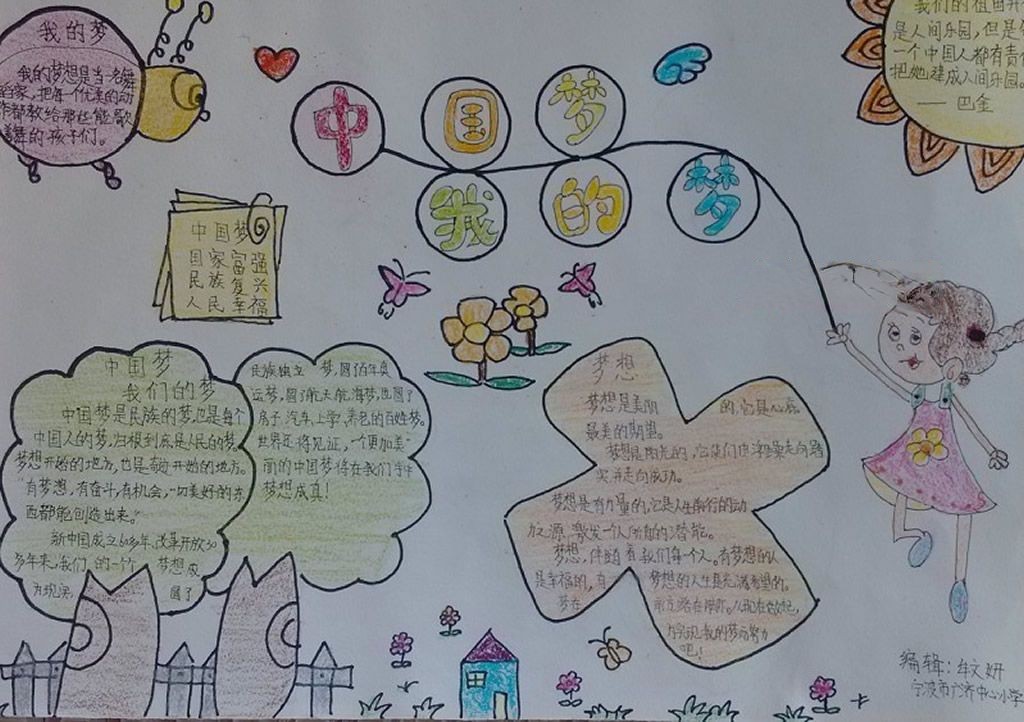 我的梦
我的梦想是当一名舞
蹈家，把每个优美的动
作都教给那些能歌
善舞的孩子们。
中国梦
我的梦
我们的祖国并
是人间乐园，但是
一个中国人都有责
把她建成人间乐园。
——巴金
中国梦
国家富强
民族复兴
人民幸福
中国梦
我们的梦
中国梦是民族的梦，也是每个
中国人的梦，归根到底是人民的梦。
梦想开始的地方，也是奇迹开始的地方。
“有梦想，有奋斗，有机会，一切美好的东
西都能创造出来。”
新中国成立60多年，改革开放30
多年来，我们的一个个梦想成
为现实，圆了
民族独立梦，圆了百年奥
运梦，圆了航天航海梦，也圆了
房子、汽车、上学、养老的百姓梦。
世界还将见证，一个更加美
丽的中国梦将在我们手中
梦想成真！
梦想
梦想是美丽的，它是心底
最美的期望。
梦想是阳光的，它使们由浮躁走向踏
实，并走向成功。
梦想是有力量的，它是人生前行的动
力之源，激发一个人所有的潜能。
梦想，伴随着我们每一个人。有梦想的人
是幸福的，有梦想的人生是充满希望的。
梦在
为实现我的梦而努力
吧！
编辑：牟文妍
宁波市广济中心小学